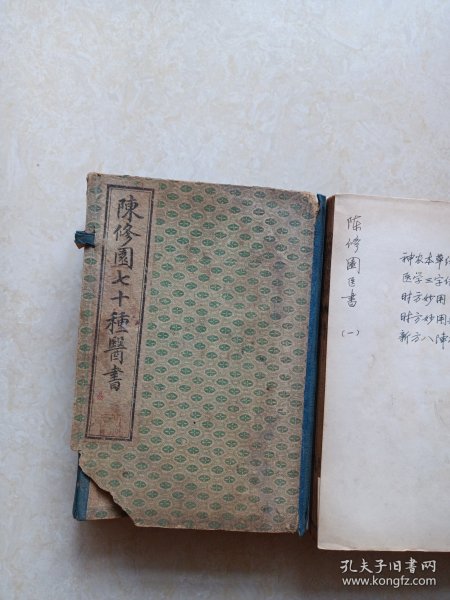 陳修園七十種醫書
陈修園医書
(一)
神农本草
医学三字
时方妙用
时方妙用
新方八陣
孔夫子旧书网
www.kongfz.com